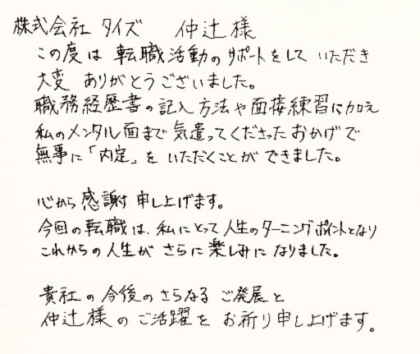 株式会社 タイズ 仲辻様
この度は 転職活動のサポートをして いただき
大変 ありがとうございました。
職務経歴書の記入方法や面接練習に加え
私のメンタル面まで気遣ってくださったおかげで
無事に「内定」を いただくことが できました。
心から感謝申し上げます。
今回の転職は、私にとって人生のターニングポイントとなり
これからの人生が さらに楽しみになりました。
貴社の今後のさらなる ご発展と
仲辻様のご活躍を お祈り申し上げます。